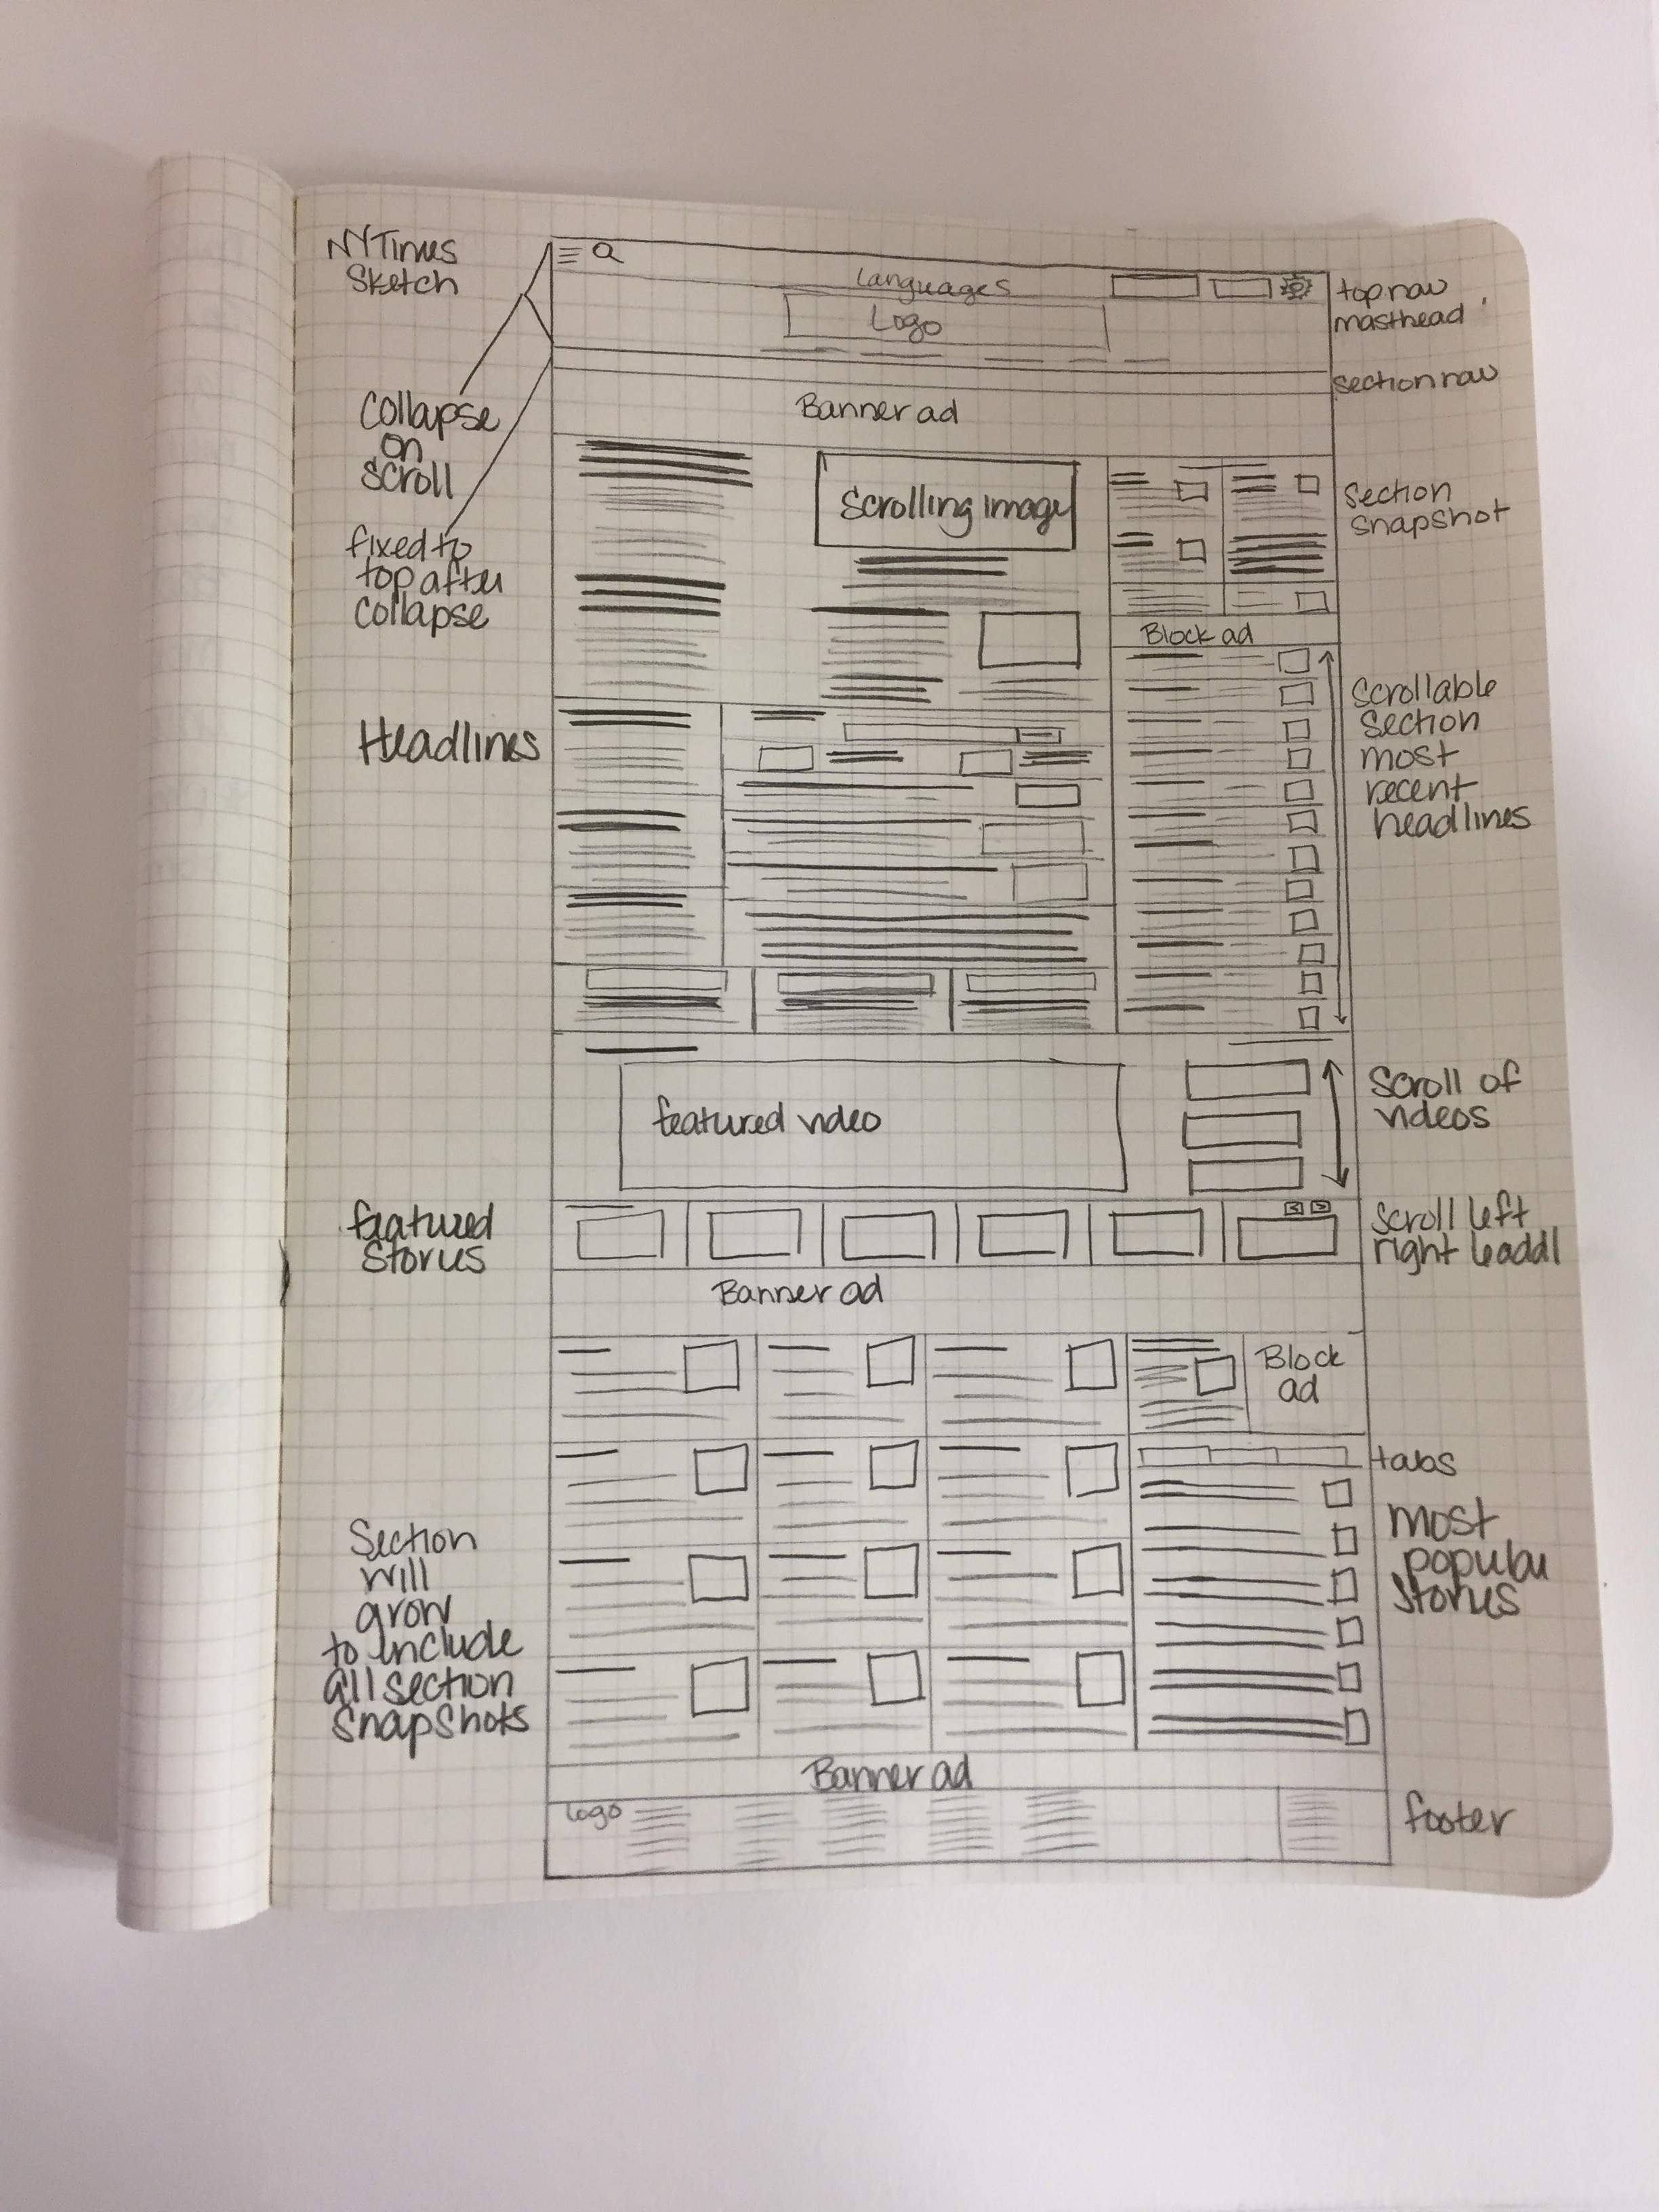 NYTimes
Sketch
Languages
Logo
top nav
masthead
section nav
Collapse
on
scroll
Banner ad
Scrolling image
Section
snapshot
fixed to
top after
collapse
Block ad
Scrollable
section
most
recent
headlines
Headlines
featured video
Scroll of
videos
featured
stories
< >
Scroll left
right
Banner ad
Block
ad
tabs
most
popular
stories
Section
will
grow
to include
all section
snapshots
Banner ad
Logo
footer